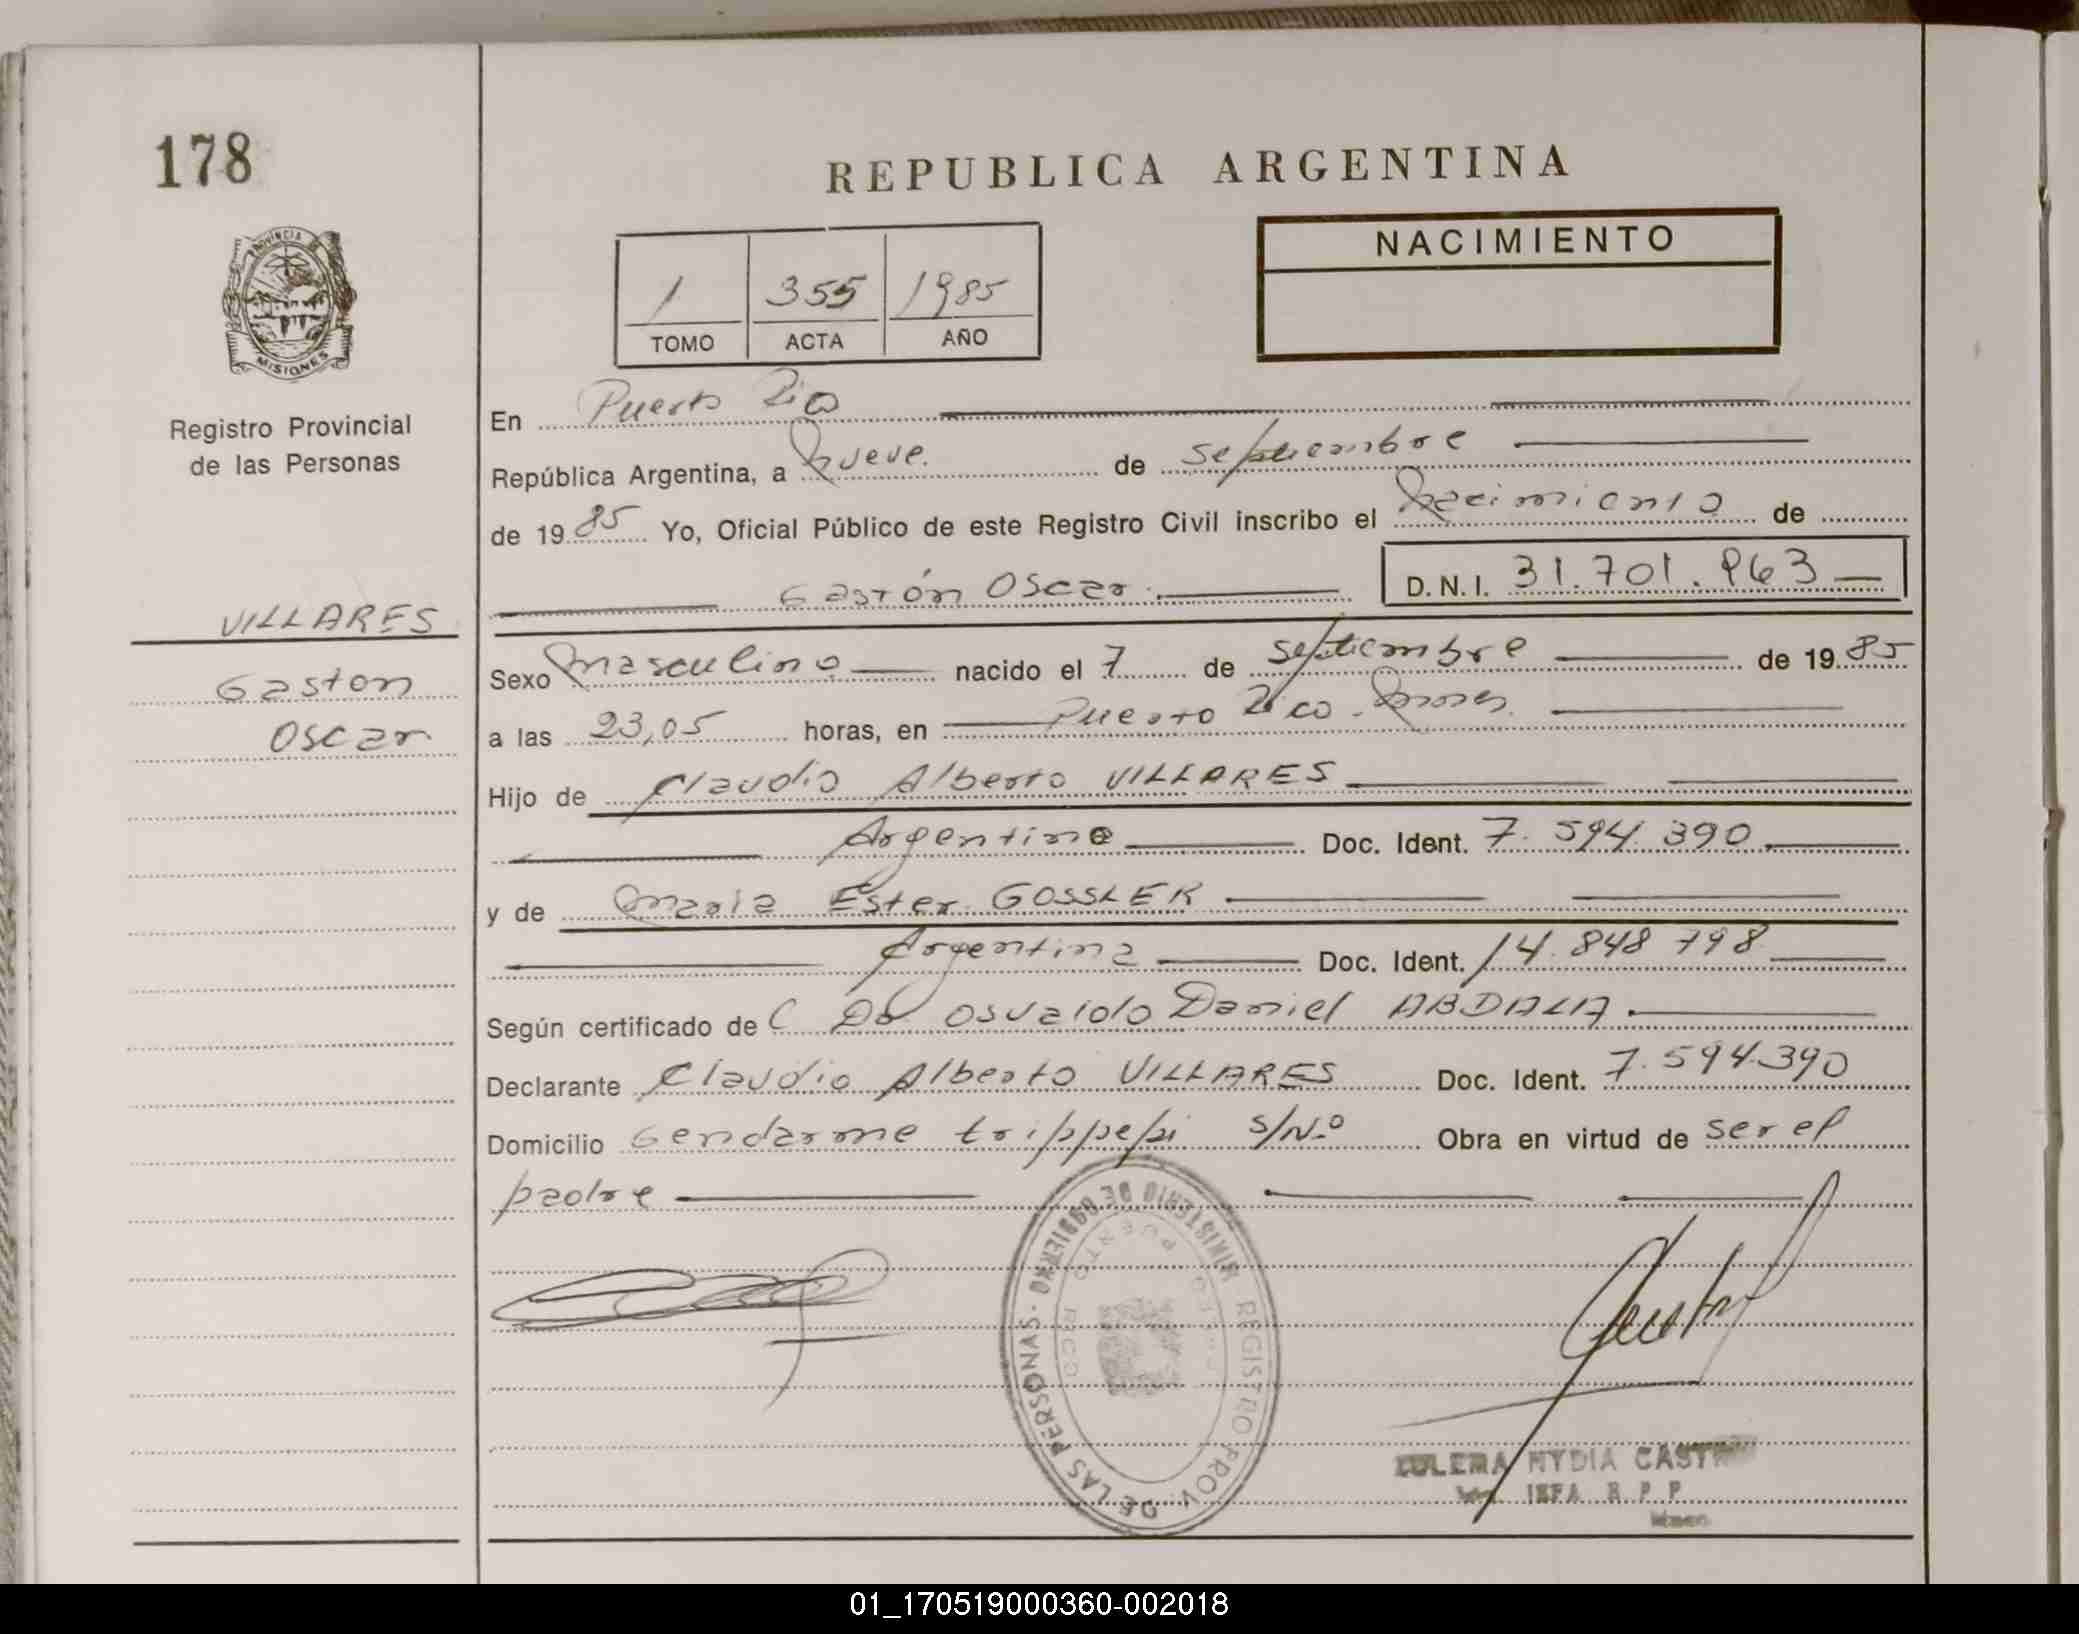 178
REPUBLICA ARGENTINA
PROVINCIA DE
MISIONES
Registro Provincial
de las Personas
1 355 1985
TOMO ACTA AÑO
NACIMIENTO
En Puerto Rico
República Argentina, a nueve de septiembre
de 1985 Yo, Oficial Público de este Registro Civil inscribo el nacimiento de
Gastón Oscar D.N.I. 31.701.963
VILLARES
Gaston
Oscar
Sexo masculino nacido el 7 de septiembre de 1985
a las 23,05 horas, en Puerto Rico
Hijo de Claudio Alberto VILLARES
Argentino Doc. Ident. 7.594.390
y de Maria Ester GOSSLER
Argentina Doc. Ident. 14.848 798
Según certificado de Osvaldo Daniel ABDALA
Declarante Claudio Alberto VILLARES Doc. Ident. 7.594.390
Domicilio Gendarme trippepi S/Nº Obra en virtud de ser el
padre
MINISTERIO DE GOBIERNO
REGISTRO PROV. DE LAS PERSONAS
PUERTO RICO
ZULEMA NYDIA CASTRO
JEFA R P P
01_170519000360-002018